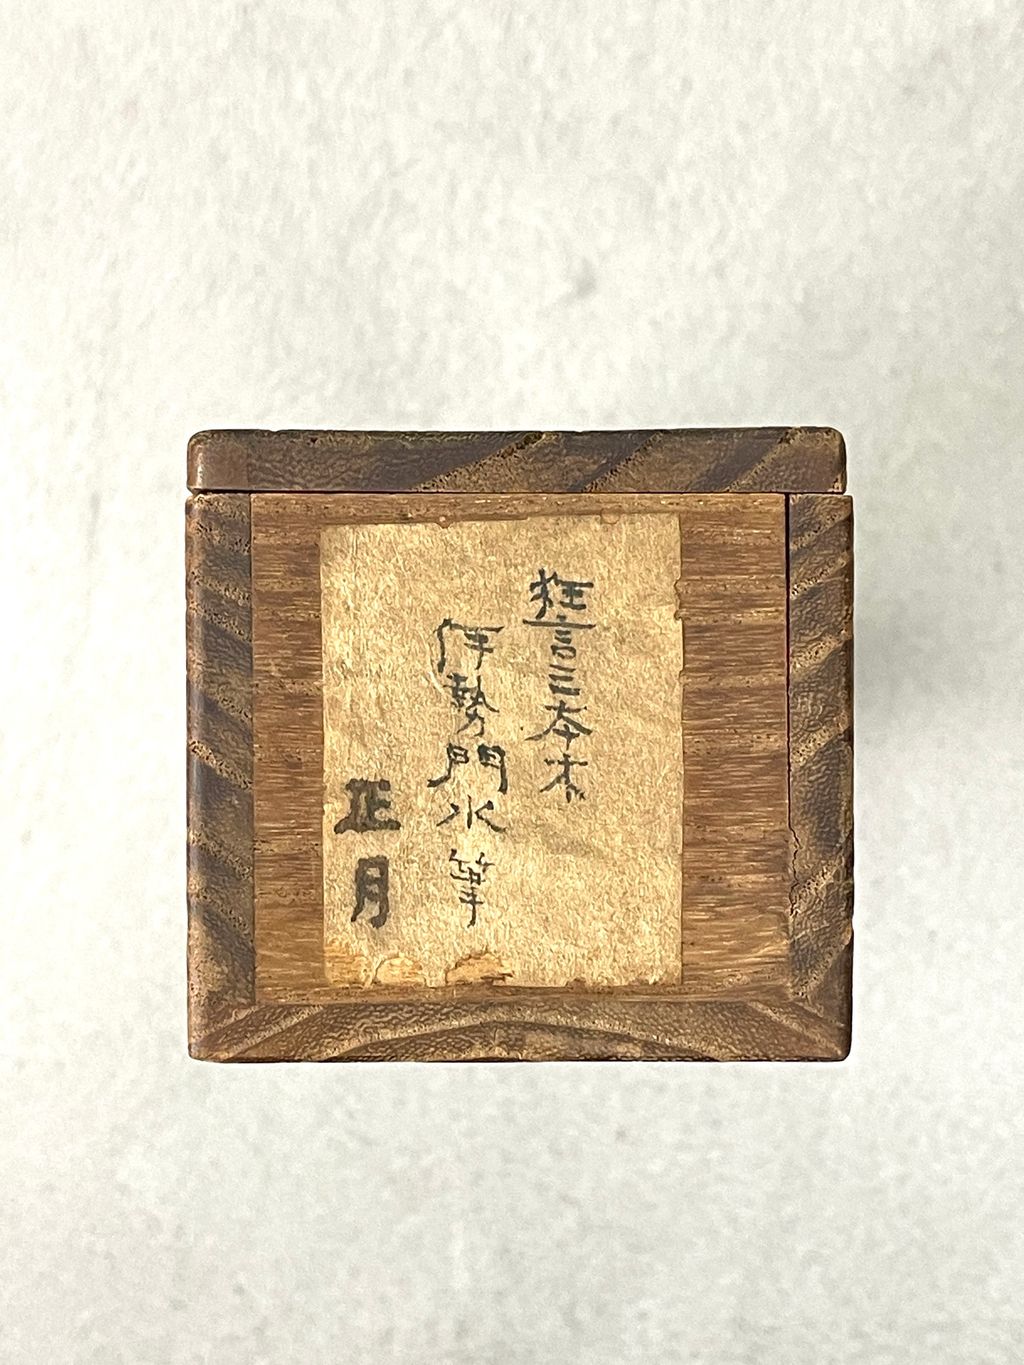 狂言三本柱
伊勢門水筆
正月